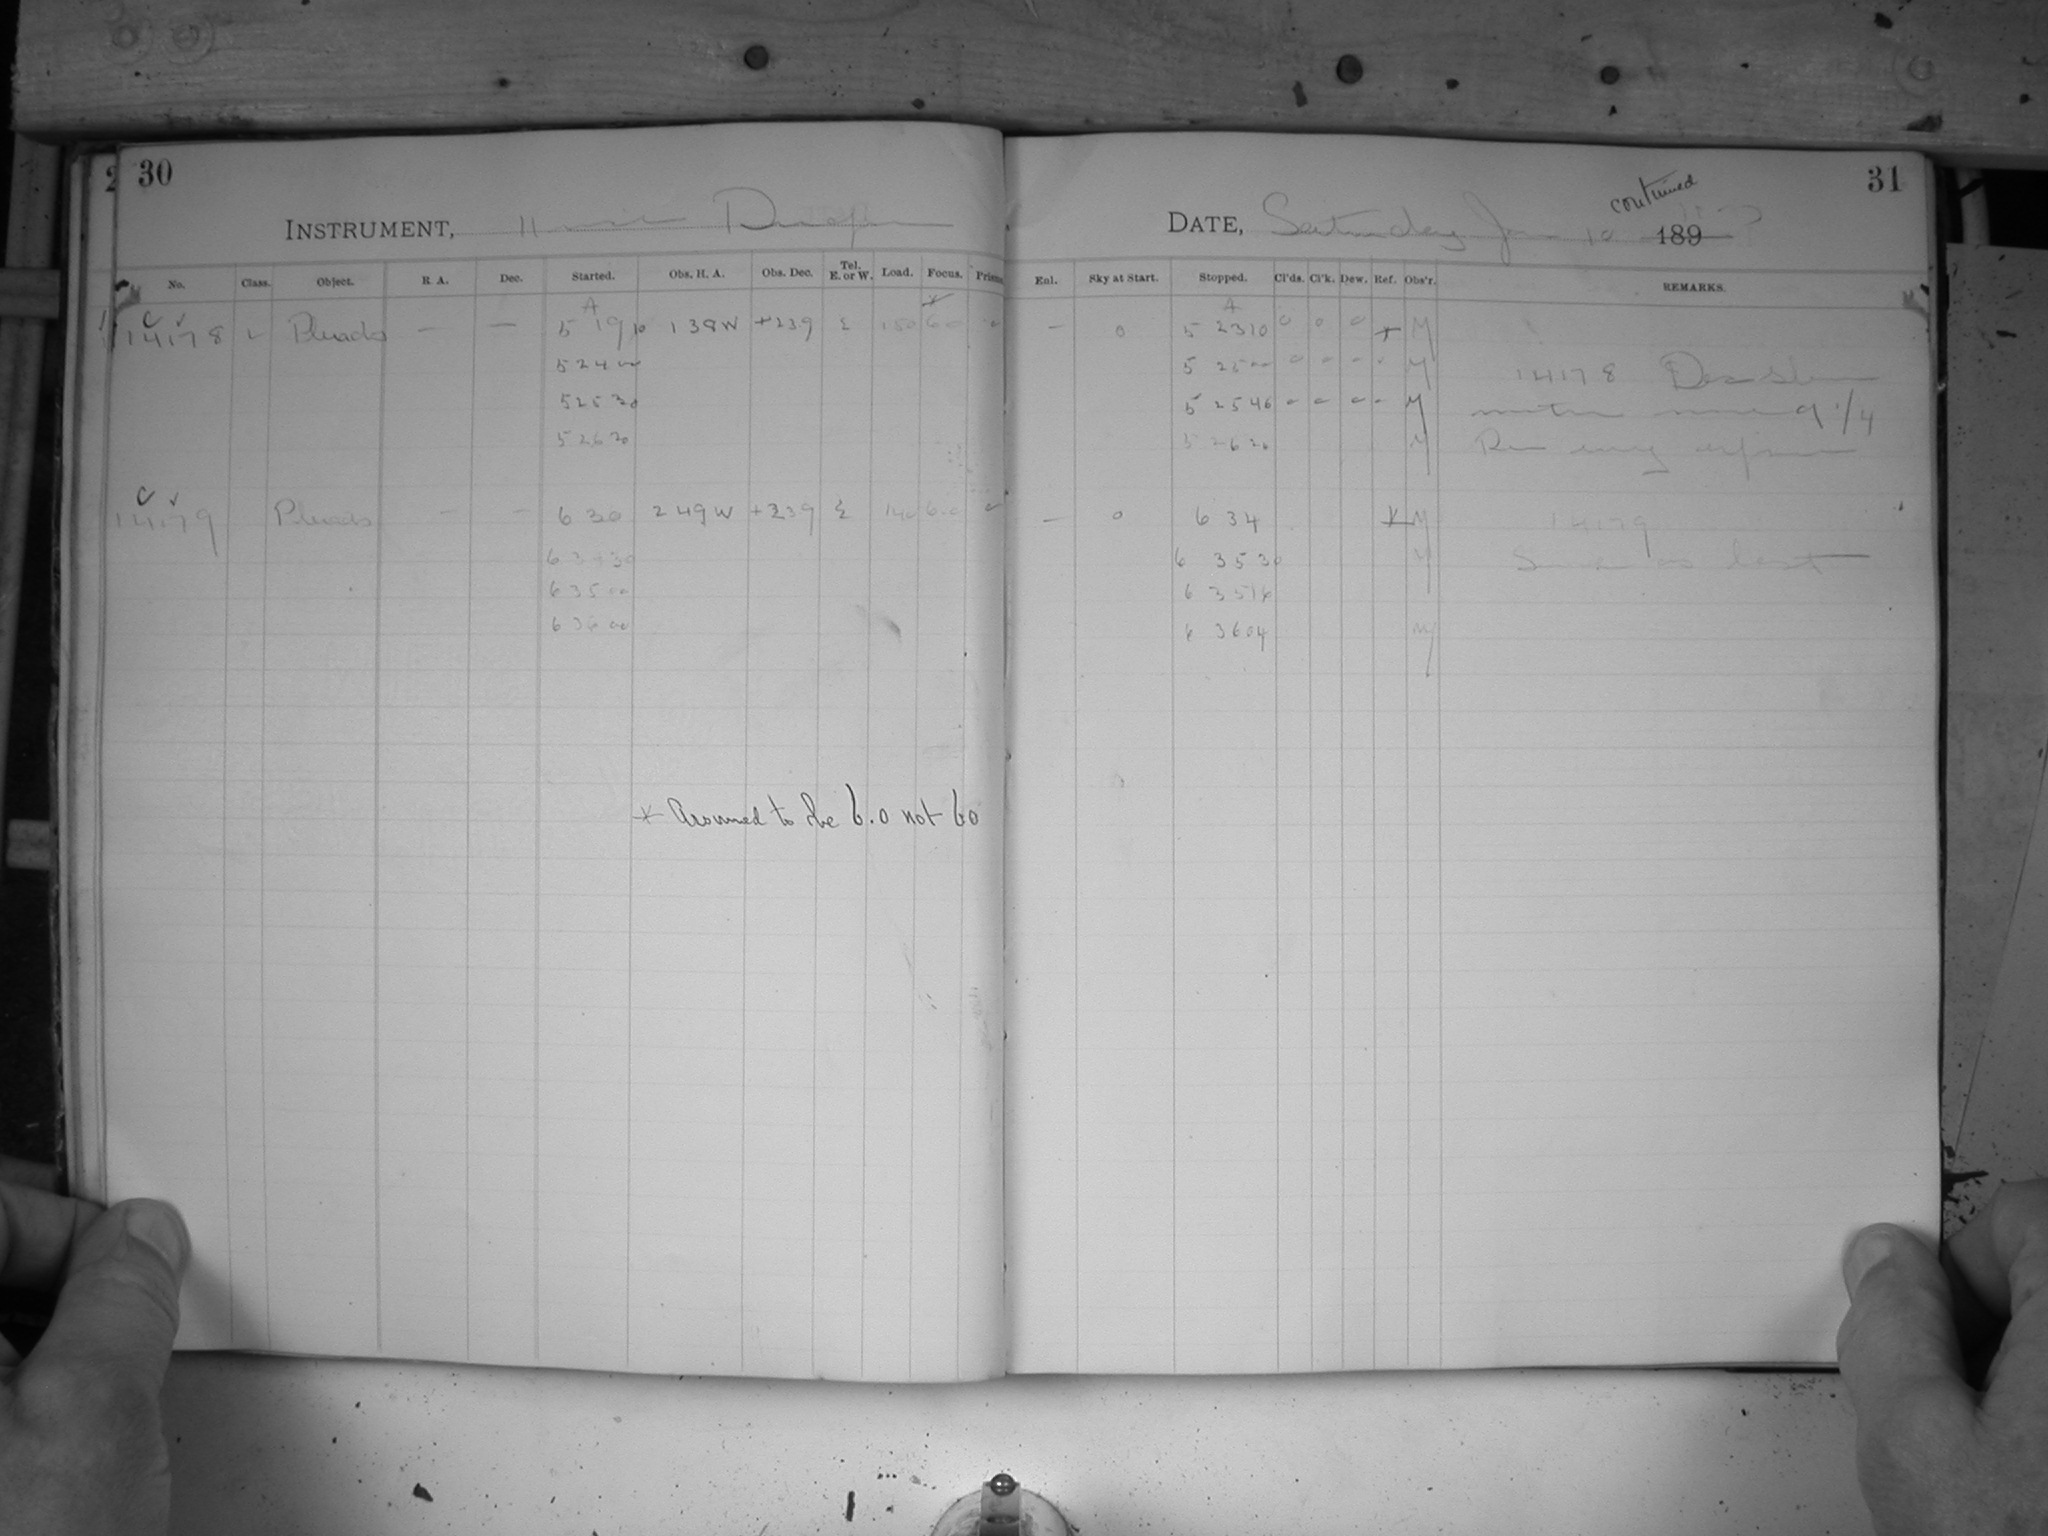 30
INSTRUMENT, Draper
No. Class. Object. R A. Dec. Started. Obs. H. A. Obs. Dec. Tel. E. or W. Load. Focus.
A
14178 Pleiads — — 5 19 10 1 38 W +239 E 150 60
5 24 00
5 25 30
5 26 20
14179 Pleiads — — 6 30 2 49 W +239 E 140 6.0
6 35 00
6 36 00
* Assumed to be 6.0 not 60
31
continued
DATE, Saturday Jan 10 189
Enl. Sky at Start. Stopped. Cl'ds. Cl'k. Dew. Ref. Obs'r. REMARKS.
A
— 0 5 23 10 0 0 0 * M
5 25 00 0 0 — M 14178 Dec Slow
5 25 46 M motion moved 1/4
5 26 26 M Rev every exposure
— 0 6 34 * M 14179
6 35 30 M Same as last
6 35 16
6 36 04 M